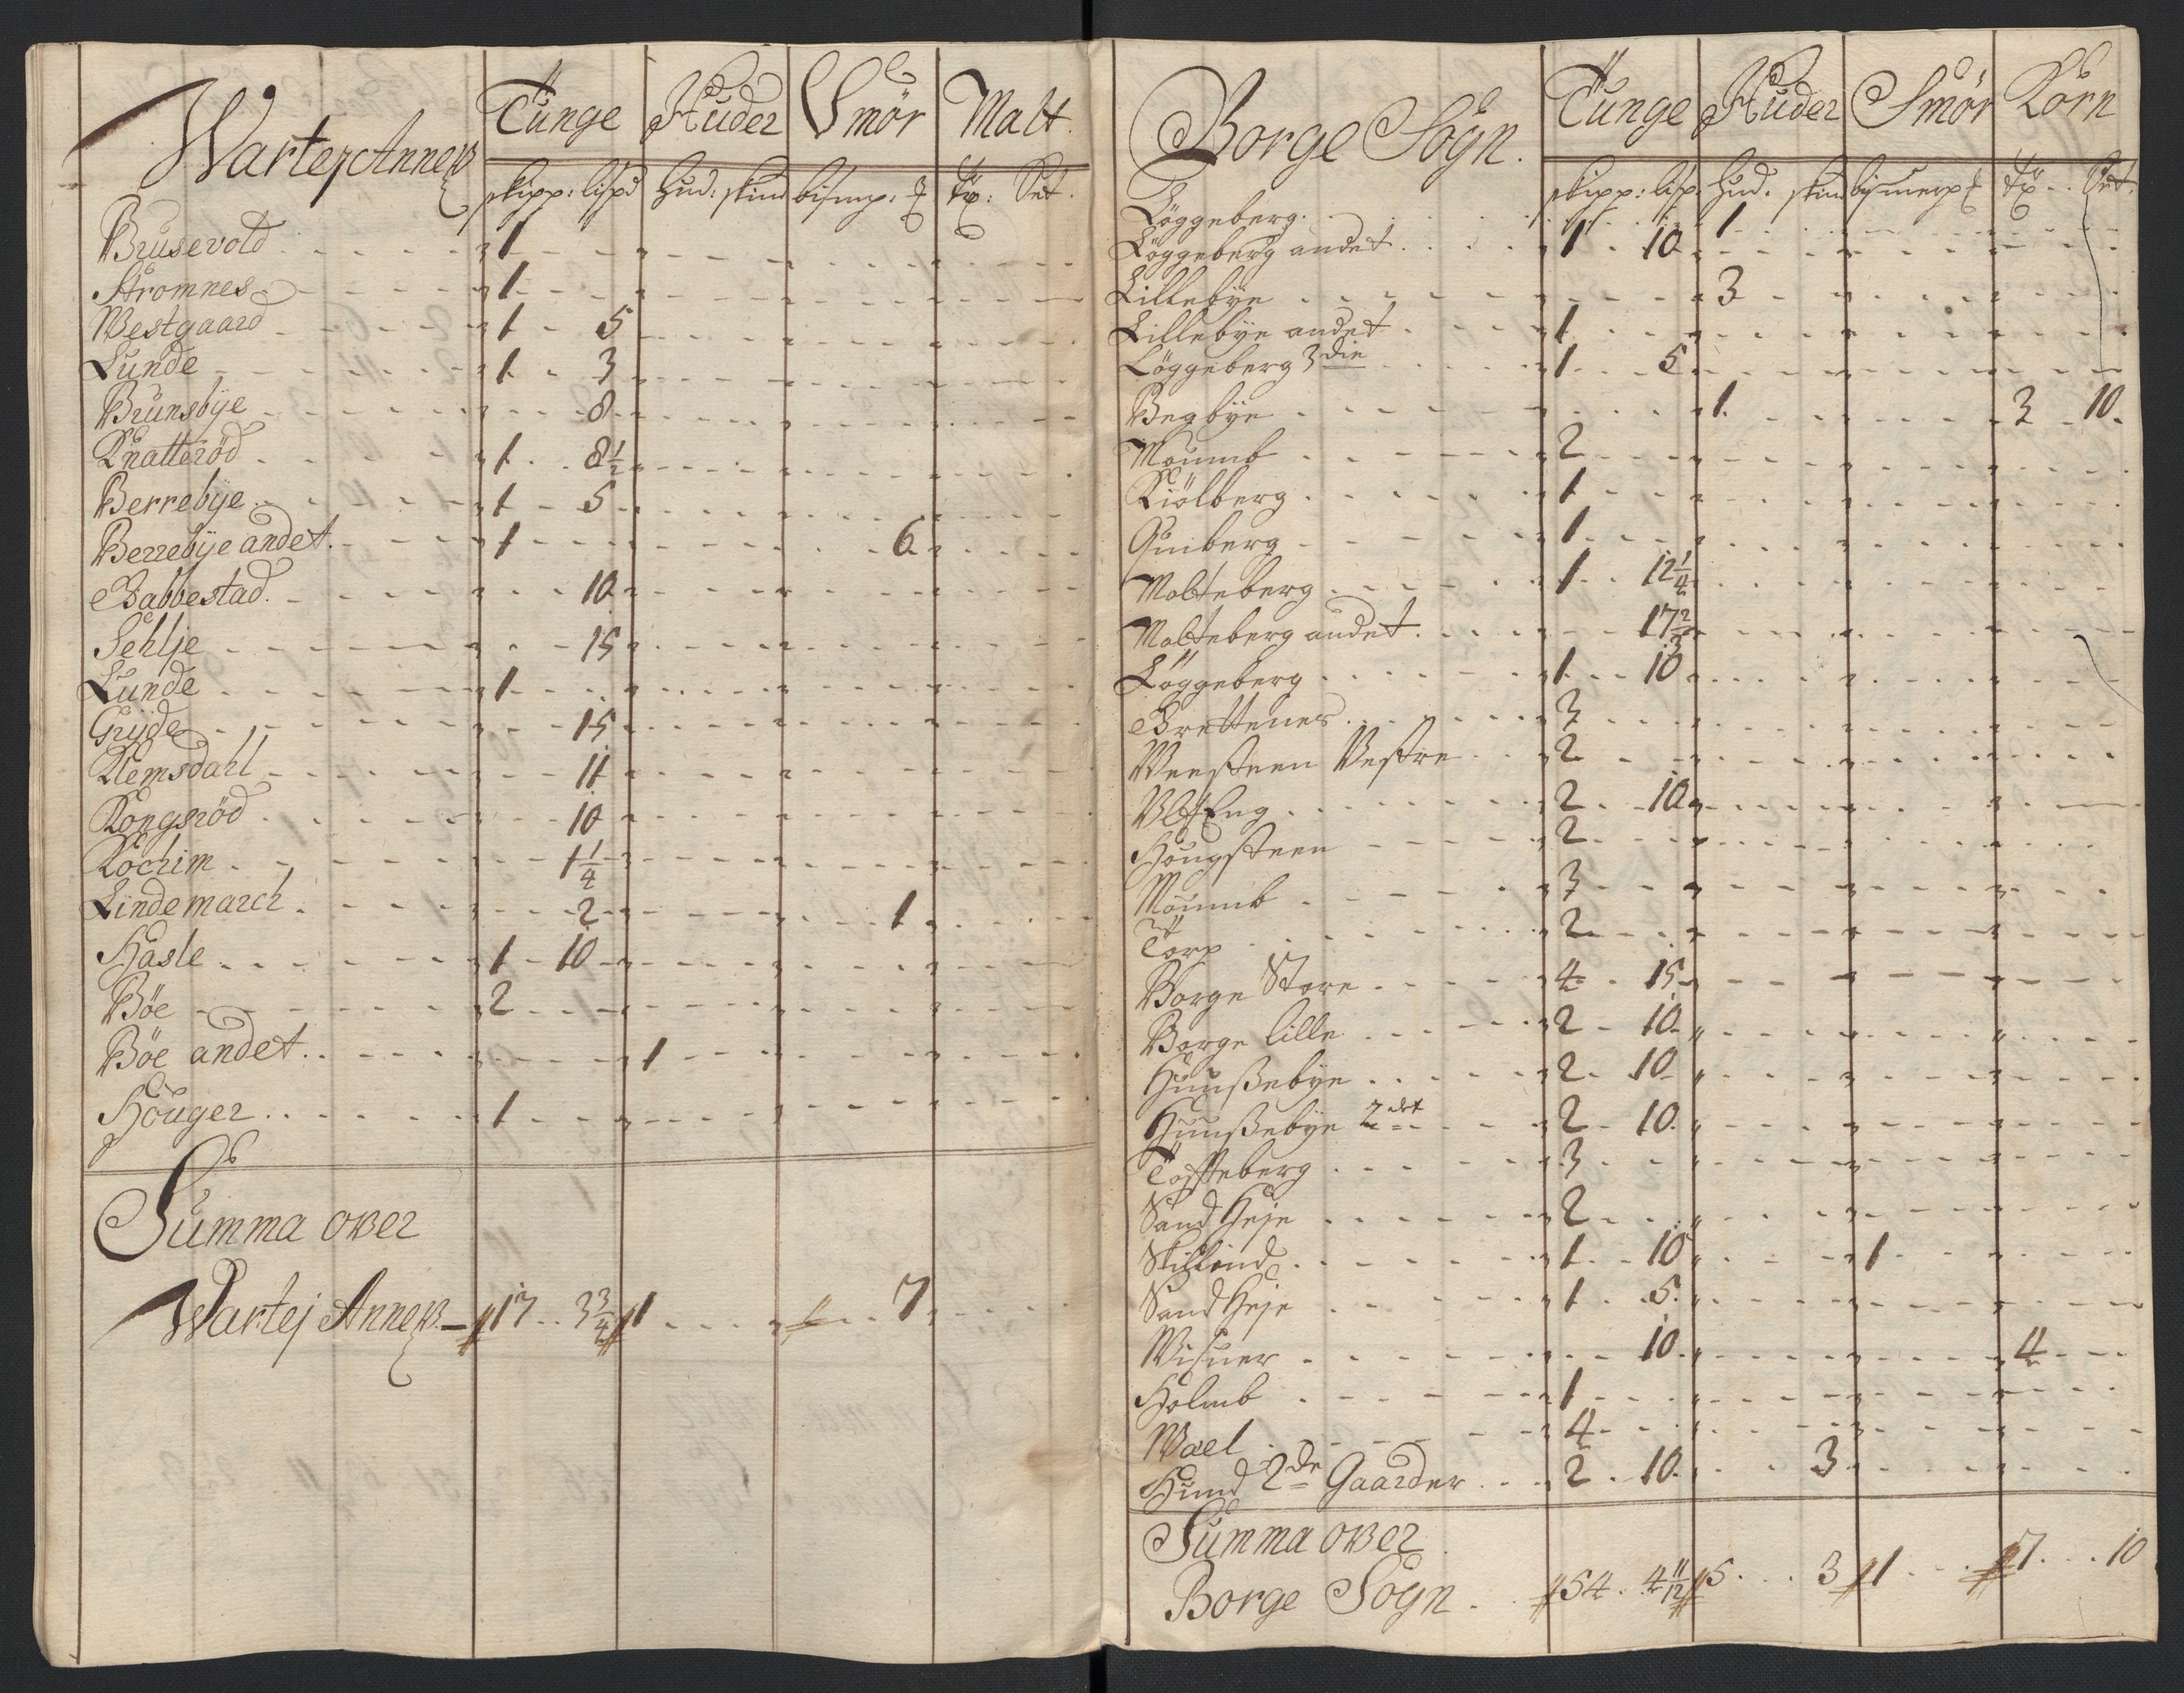 Wartej Annex Tunge Huder Smör Malt.
skipp: lispd Hud: skind bismp: Tø: Set.
Brusevold 1
Stromnes 1
Westgaard 1 5
Lunde 1 3
Brunsbÿe 8
Knatteröd 1 8 1/2
Berrebÿe 1 5
Berrebÿe andet. 1 6
Babbestad. 10
Sehlje 15
Lunde 1
Grÿde 15
Klemsdahl 11
Kongsröd 10
Kochim 1 1/4
Lindemarch 2 1
Hasle 1 10
Böe 2
Böe andet 1
Höuger 1
Summa over
Wartej Annex. 17 3 3/4 1 7
Borge Sogn. Tunge Huder Smör Korn
skipp: lisp. Hud. skind bismerp Tø Set.
Löggeberg. 1
Löggeberg andet 1 10
Lillebÿe 3
Lillebÿe andet 1
Löggeberg 3die 1 5
Begbÿe 1 3 10
Moumb 2
Kiölberg 1
Guiberg 1
Molteberg 1 12 1/4
Molteberg andet 17 2/3
Löggeberg 1 10
Brettenes 3
Weesteen Vestre 2
UlfEng 2 10
Hougsteen 2
Moumb 3
Torp 2
Borge Store 4 15
Borge lille 2 10
Huusßebÿe 2 10
Huusßebÿe 2det 2 10
Tosseberg 3
Sand Heje 2
Skillind 1 10 1
Sand Heje 1 5
Wisuer 10 4
Holmb 1
Wael 4
Hund 2de Gaarder 2 10 3
Summa over
Borge Sogn. 54 4 11/12 5 3 1 7 10